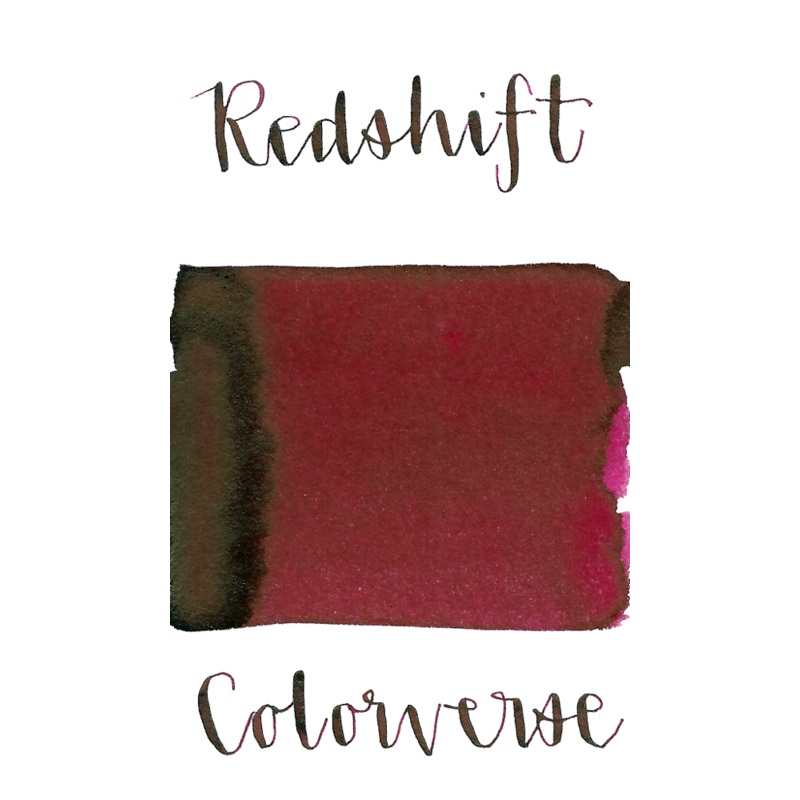 Redshift
Colorverse